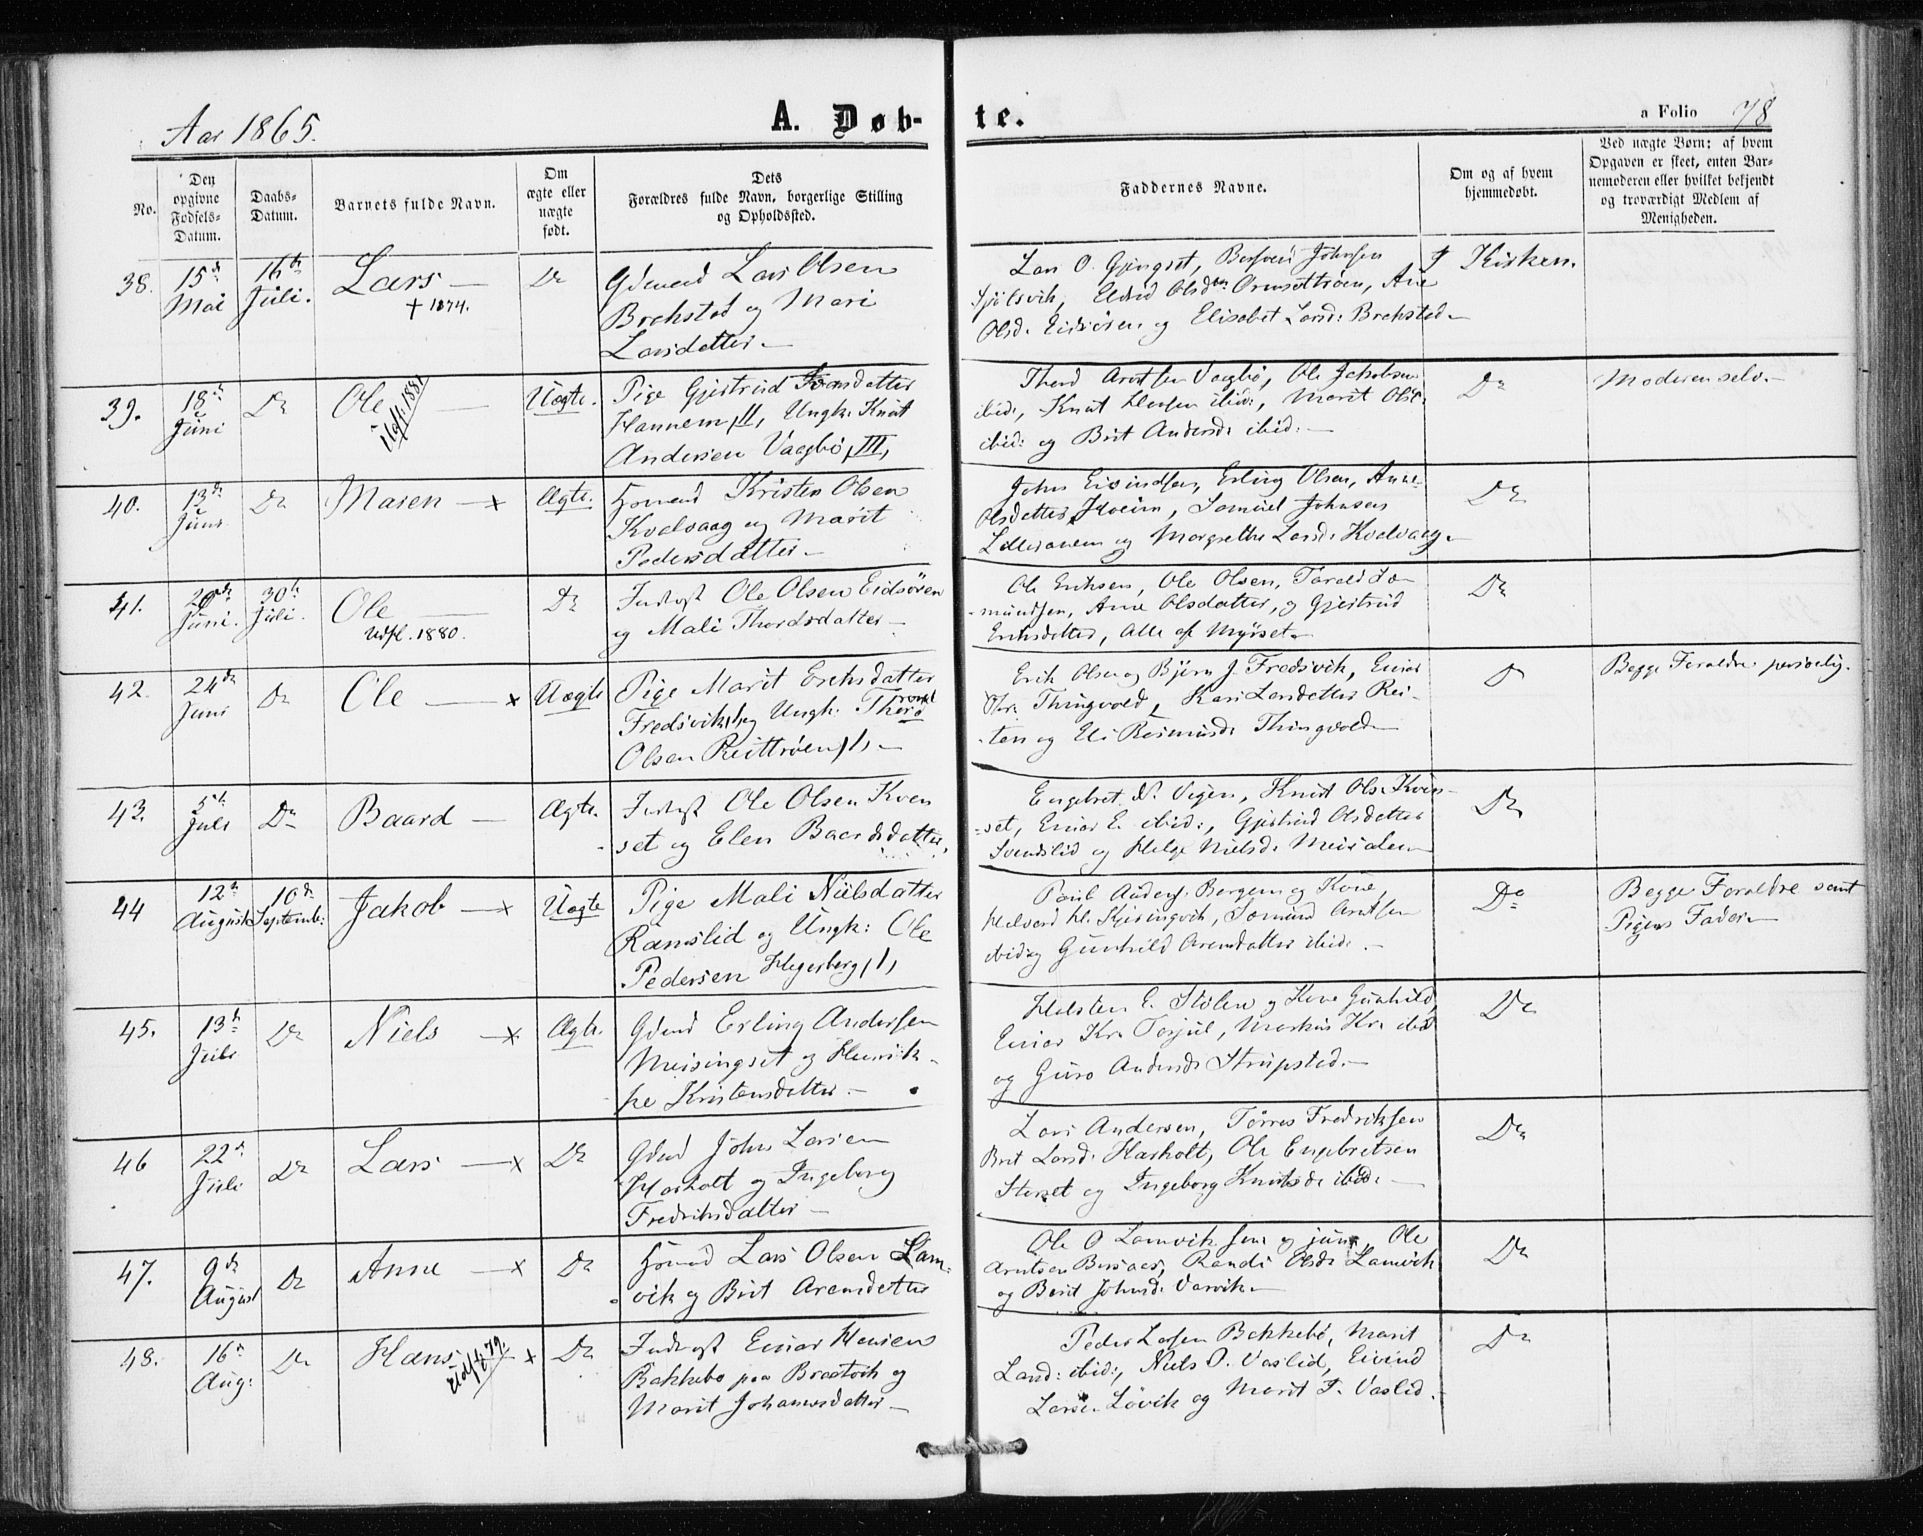 Aar 1865.
A. Døbte.
a Folio 78
No.
Den opgivne Fødsels-Datum.
Daabs-Datum.
Barnets fulde Navn.
Om ægte eller uægte født.
Dets Forældres fulde Navn, borgerlige Stilling og Opholdssted.
Faddernes Navne.
Om og af hvem hjemmedøbt.
Ved uægte Børn: af hvem Opgaven er skeet, enten Barnemoderen eller hvilket bekjendt og troværdigt Medlem af Menigheden.
38. 15de Mai 16de Juli. Lars — † 1874. Do
Gdmand Lars Olsen
Brekstad og Mari
Larsdatter —
Lars O. Gjengset, Johnsen
Olsdtr Ormsettrøen, Ane
Olsd. Eidsøren og Elisabet Larsd: Brekstad —
I Kirken.
39. 18de Juni Do Ole Udfl. 1881 Uægte.
Pige Gjertrud
Hannem, II, Ungk: Knut
Andersen Vaagbø, III,
Thord Arntsen Vaagbø, Ole Jakobsen
ibid:, Knut ibid:, Marit Olsd.
ibid: og Brit Andersd: ibid: —
Do
Moderen selv. —
40. 13de Juni Do Maren — x Ægte.
Kristen Olsen
Kvalvaag og Marit
Pedersdatter —
John Eivindsen, Erling Olsen, Ane
Olsdatter Hoem, Samuel Johnsen
og Margrethe Larsd: Kvalvaag —
Do
41. 20de Juni. 30te Juli. Ole Udfl. 1880. Do
Inderst Ole Olsen Eidsøren
og Mali Thordsdatter —
Ole Eriksen, Ole Olsen, Tarald
mundsen, Ane Olsdatter, og Gjertrud
Eriksdatter, Alle af Myrset —
Do
42. 24de Juni Do Ole — x Uægte
Pige Marit Eriksdatter
Fredsvik, I, og Ungk:
Olsen Reittrøen, I, —
Erik Olsen og Bjørn J. Fredsvik, Einar
Thingvold, Kari Larsdatter Rei-
-ten og Eli Rasmusd: Thingvold —
Do
Begge Forældre personlig.
43. 5te Juli Do Baard — Ægte.
Inderst Ole Olsen Kven
set og Elen Baardsdatter.
Engebret N. Vegen, Knut Ols: Kven-
-set, Einar E. ibid:, Gjertrud Olsdatter
Svendslid og Helge Nielsd: Meisalen —
Do
44 12te August 10de Septemb: Jakob — x Uægte
Pige Mali Nielsdatter
Ramslid og Ungk: Ole
Pedersen Hegerberg, I,
Paul Anders. Bergem og Kone,
Halvard H. Skjeringvik, Arntsen
ibid og Gunhild Arensdatter ibid: —
Do
Begge Forældre samt
Pigens Fader —
45. 13de Juli Do Niels — x Ægte.
Gdmd Erling Andersen
Meisingset og Henrik-
ke Kristensdatter —
Halsten E. Stølen og Kone Gunhild,
Einar Kr. Torjul, Markus Kr: ibid
og Guro Andersd: Strupstad —
Do
46 22de Juli Do Lars — x Do
Gdmd John Larsen
Harholt og Ingeborg
Fredriksdatter —
Lars Andersen, Tørres Fredriksen
Brit Larsd: Harholt, Ole Engebretsen
Storset og Ingeborg Knutsd: ibid: —
Do
47. 9de August Do Anne — x Do
Lars Olsen Lam-
vik og Brit Arensdatter
Ole O Lamvik sen: og jun:, Ole
Arntsen Randi Olsd: Lamvik
og Berit Johnsd: Varvik —
Do
48. 16de Aug: Do Hans Udfl. 79. x Do
Inderst Einar Hansen
Bakkebø paa Bratvik og
Marit Johannesdatter —
Peder Larsen Bakkebø, Marit
Larsd: ibid:, Niels O. Vaslid, Eivind
Larsen Løvik og Marit T. Vaslid. —
Do